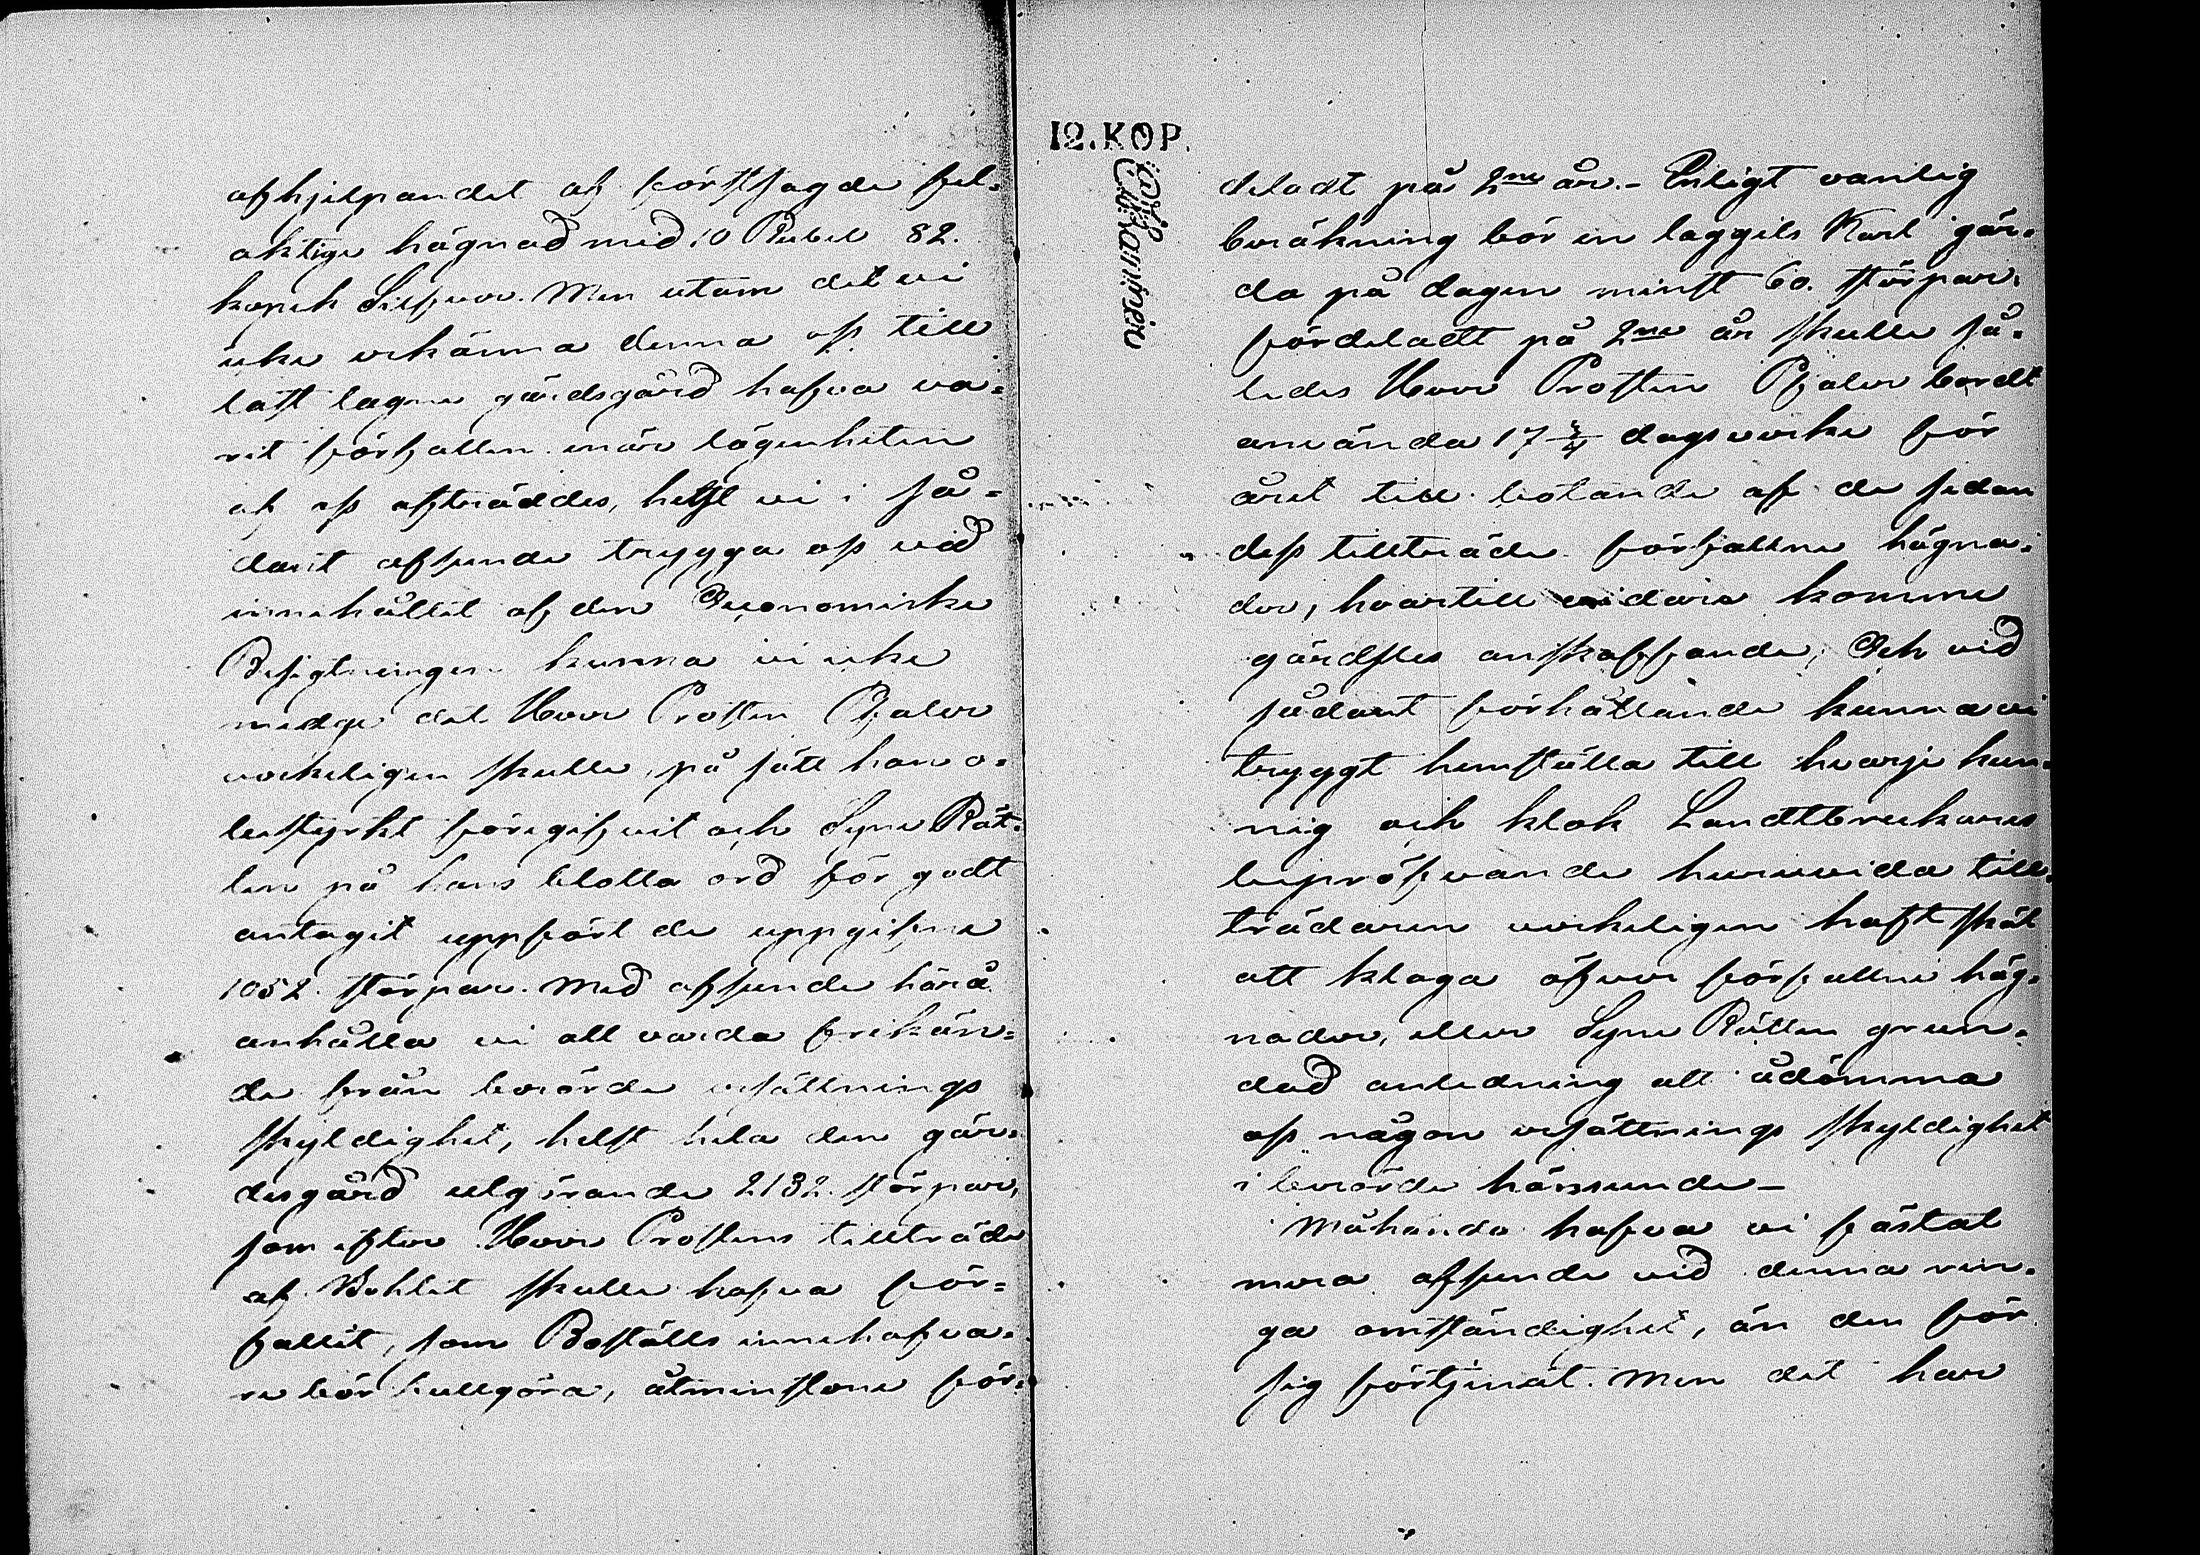 afhjelpandet af förstsagde fel-
aktige hägnad med 10 Rubel 82.
kopek Silfver. Men utom det vi
icke erkänna denna oss till
last lagna gärdsgård hafva va-
rit förfallen när lägenheten
af oss afträddes, helst vi i så-
dant afseende trygga oss vid
innehållet af den Oeconomiske
Besigtningen kunna vi icke
medge det Herr Prosten Pfaler
verkeligen skulle, på sätt han o-
bestyrkt föregifvit och Syne Rät-
ten på hans blotta ord för godt
antagit uppfört de uppgifne
1052 störpar. Med afseende härå
anhålla vi att varda frikän-
de från berörde ersättnings
skyldighet, helst hela den gär-
desgård utgörande 2132 störpar,
som efter Herr Prostens tillträde
af Bohlet skulle hafva för-
fallit, som Boställs innehafva-
re bör fullgöra, åtminstone för-
12.KOP.
deladt på 2ne år.- Enligt vanlig
beräkning bör en laggils Karl gär-
da på dagen minst 60. störpar.
fördeladt på 2ne år skulle så-
ledes Herr Prosten Pfaler bordt
använda 17 3/4 dagsverke för
året till botande af de sedan
dess tillträde förfallne hägna-
der, hvartill vidare komme
gärdsles anskaffande; Och vid
sådant förhållande kunna vi
tryggt hemställa till hvarje kun-
nig och klok Landtbrukares
bepröfvande huruvida till-
trädaren verkeligen haft skäl
att klaga öfver förfallne häg-
nader, eller Syne Rätten grun-
dad anledning att ådömma
oss någon ersättnings skyldighet
i berörde hänseende-
Måhända hafva vi fästat
mera afseende vid denna rin-
ga omständighet, än den för
sig förtjenat. Men det har